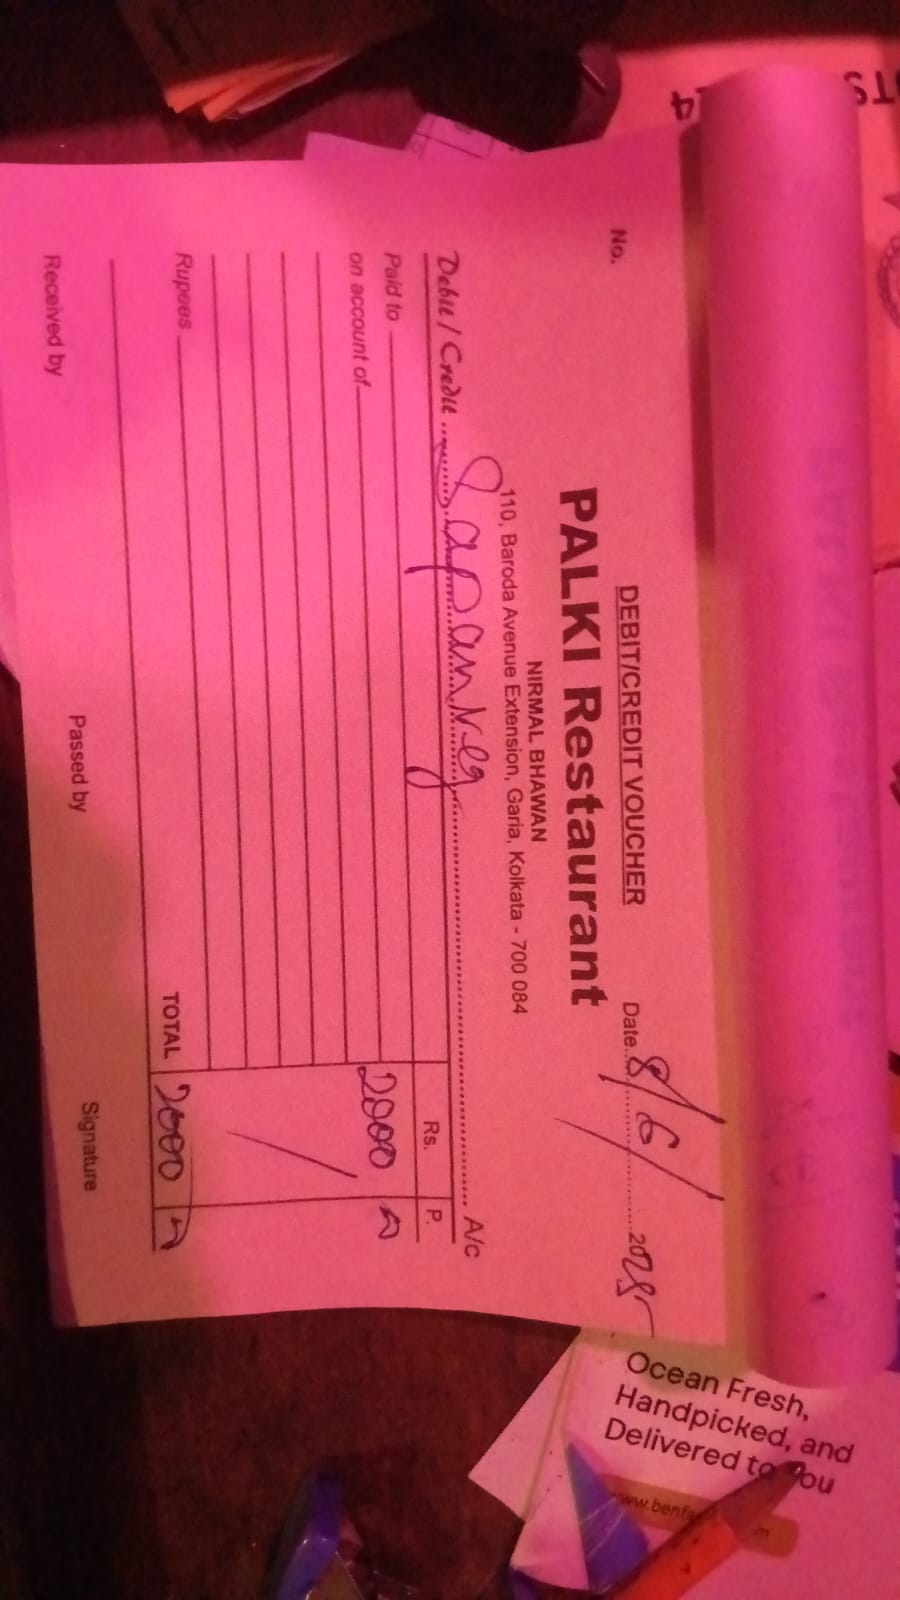 DEBIT/CREDIT VOUCHER
No.
Date 8/6/ 2025
PALKI Restaurant
NIRMAL BHAWAN
110, Baroda Avenue Extension, Garia, Kolkata - 700 084
Debit / Credit Sapan Neg A/c
Rs. P.
Paid to 2000
on account of
Rupees
TOTAL 2000
Received by Passed by Signature
Ocean Fresh,
Handpicked, and
Delivered to You